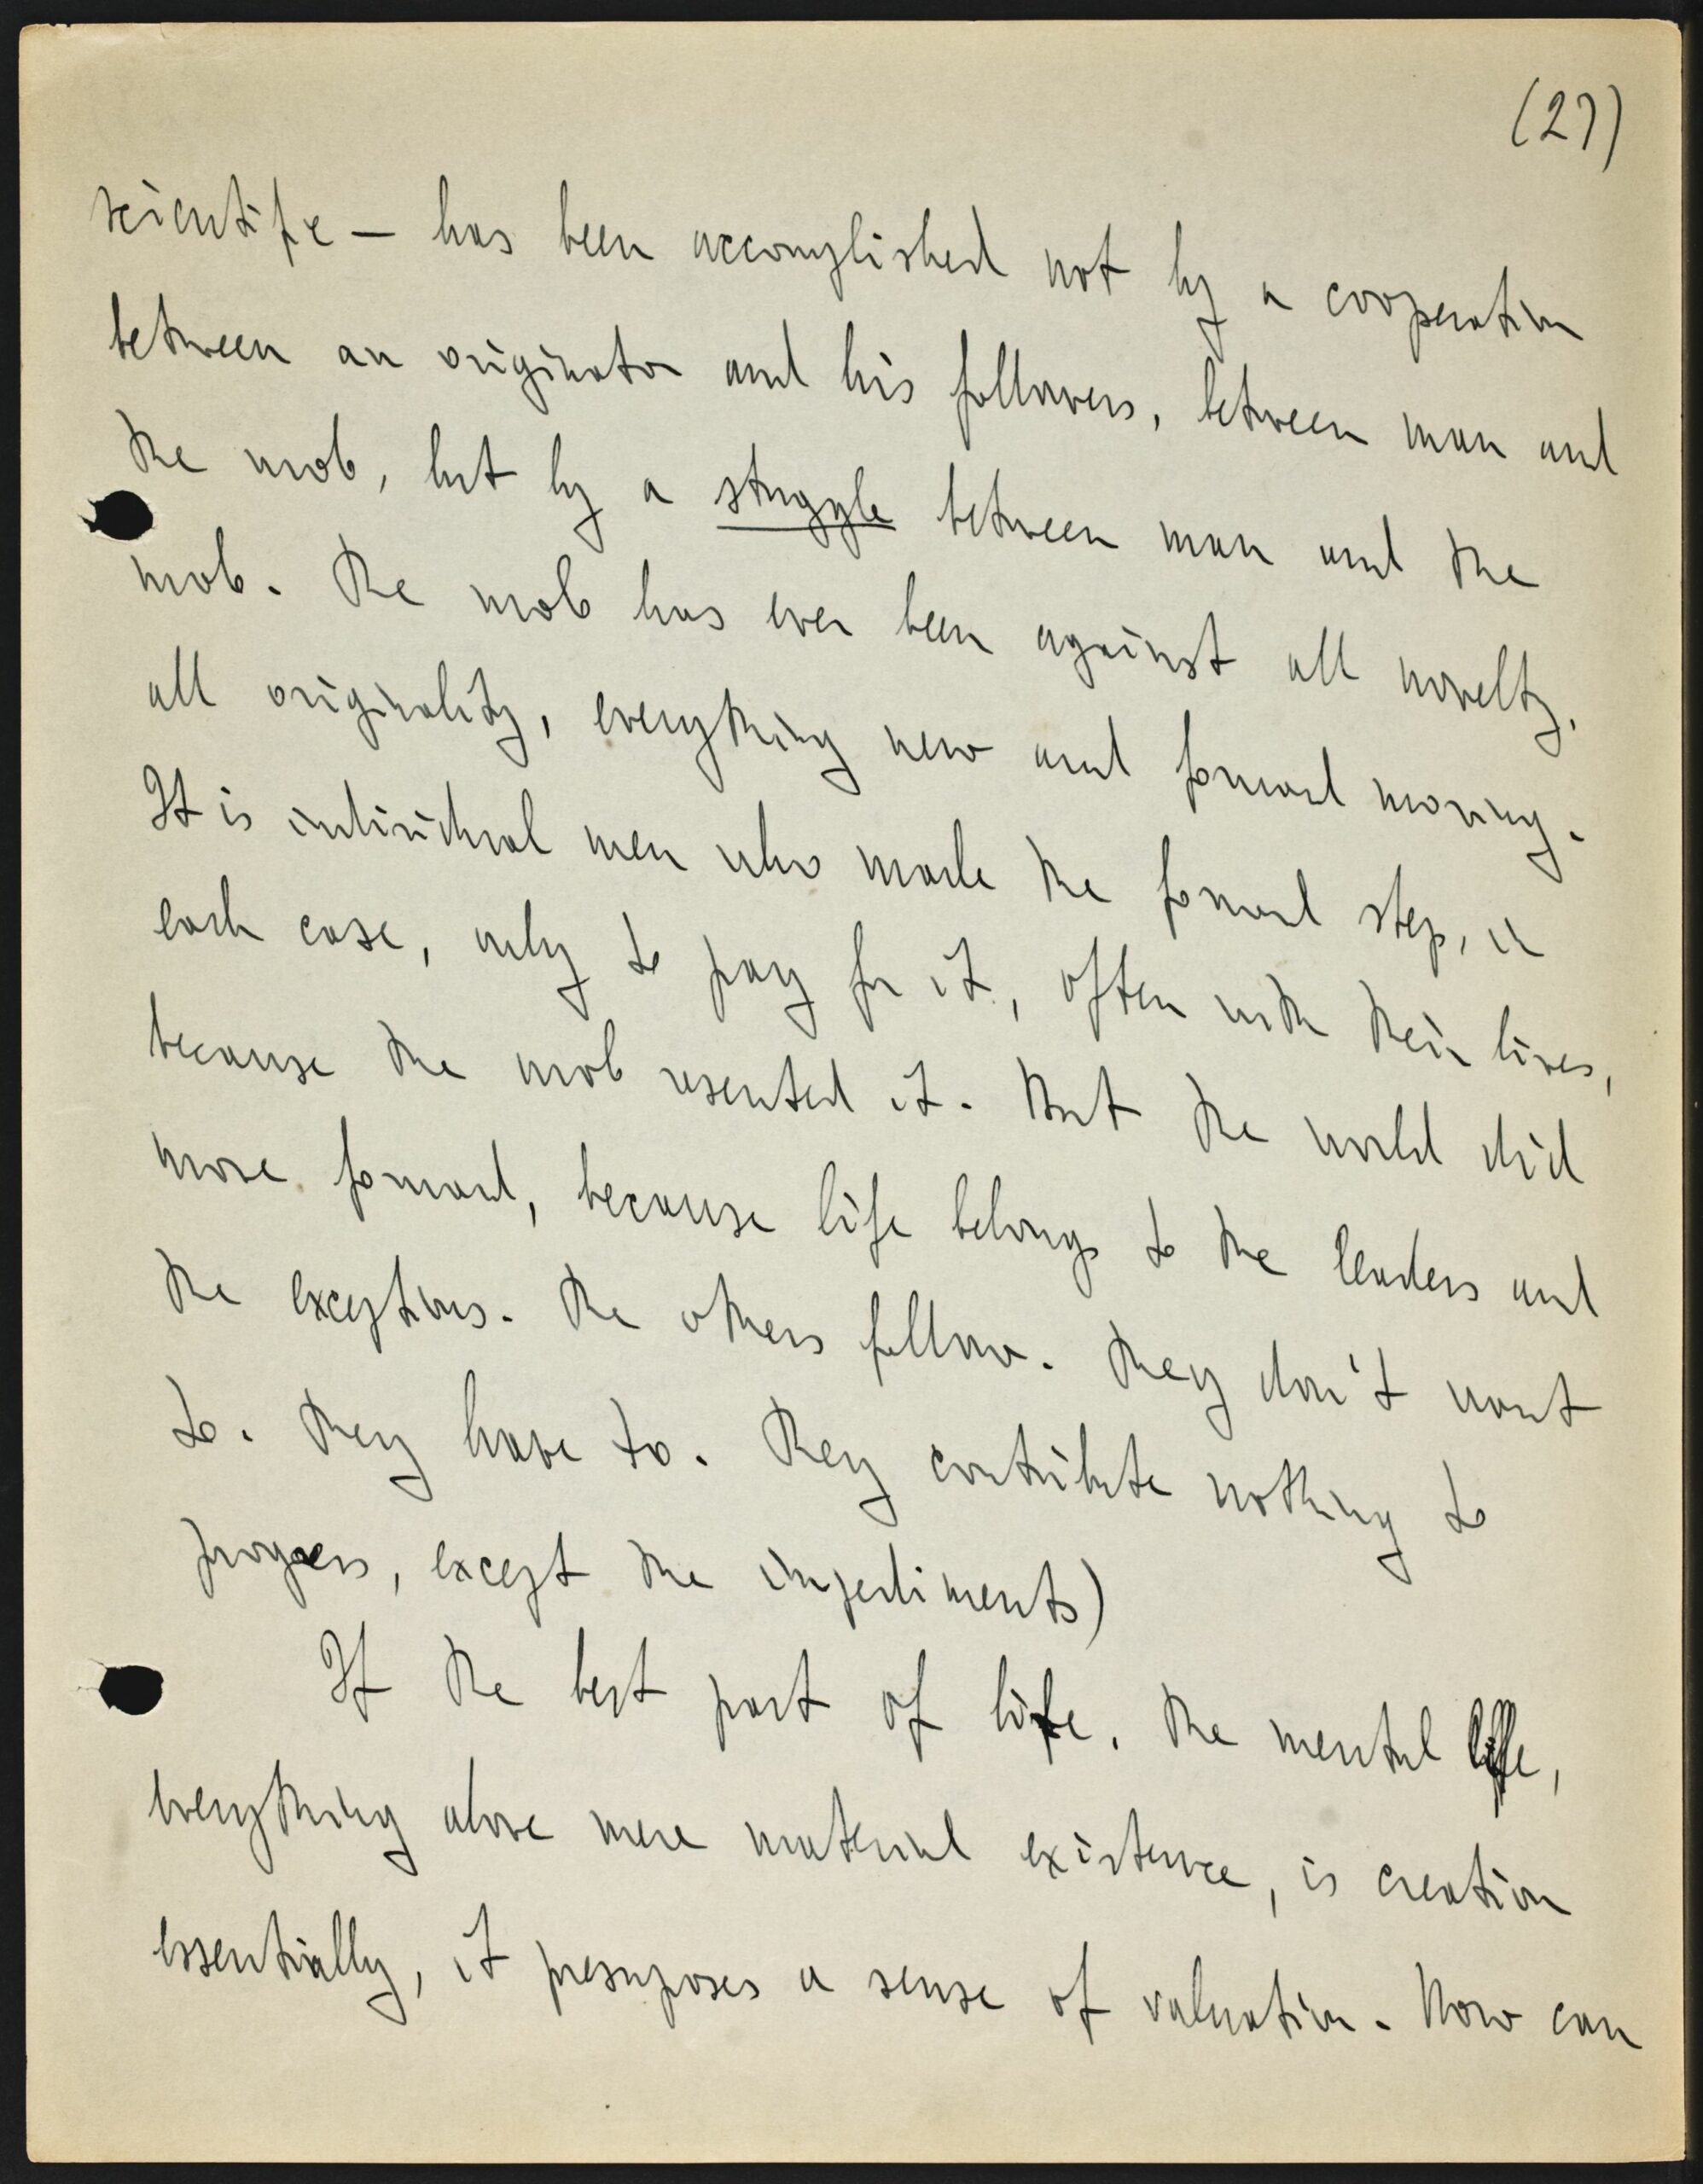 (27)
scientific — has been accomplished not by a cooperation
between an originator and his followers, between man and
the mob, but by a struggle between man and the
mob. The mob has ever been against all novelty,
all originality, everything new and forward moving.
It is individual men who made the forward step, in
each case, only to pay for it, often with their lives,
because the mob resented it. But the world did
move forward, because life belongs to the leaders and
the exceptions. The others follow. They don't want
to. They have to. They contribute nothing to
progress, except the impediments)
If the best part of life, the mental life,
everything above mere material existence, is creation
essentially, it presuposes a sense of valuation. How can